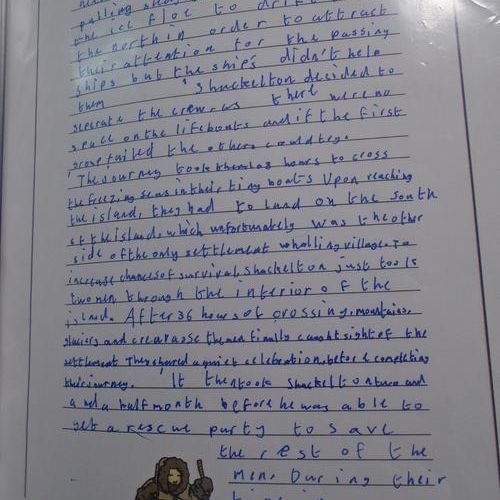 the ice floe to drift
the north in order to attract
their attention for the passing
ships but the ships didn't help
them Shackelton decided to
seperate the crew as there were no
space on the lifeboats and if the first
group failed the others could try.
The journey took them hours to cross
the freezing seas in their tiny boats Upon reaching
the island, they had to land on the south
of the island, which unfortunately was the other
side of the only settlement whalling village. To
increase chances of survival, Shackelton just took
two men through the interior of the
island. After 36 hours of crossing, mountains,
glaciers and crevasse the men finally caught sight of the
settlement They shared a quiet celebration, before completing
their journey. It then took Shackelton and
and a half month before he was able to
get a rescue party to save
the rest of the
men. During their